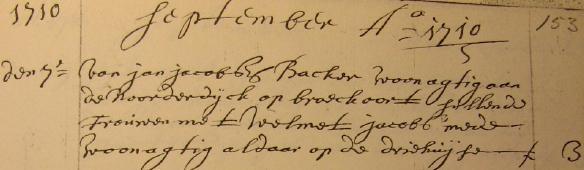 1710 September A° 1710 153
den 7e van jan jacobbs Backer woonagtig aan
de Noorderdyck op broeckoort sullende
Trouwen met Welmet jacobbs mede
woonagtig aldaar op de driehuijse B